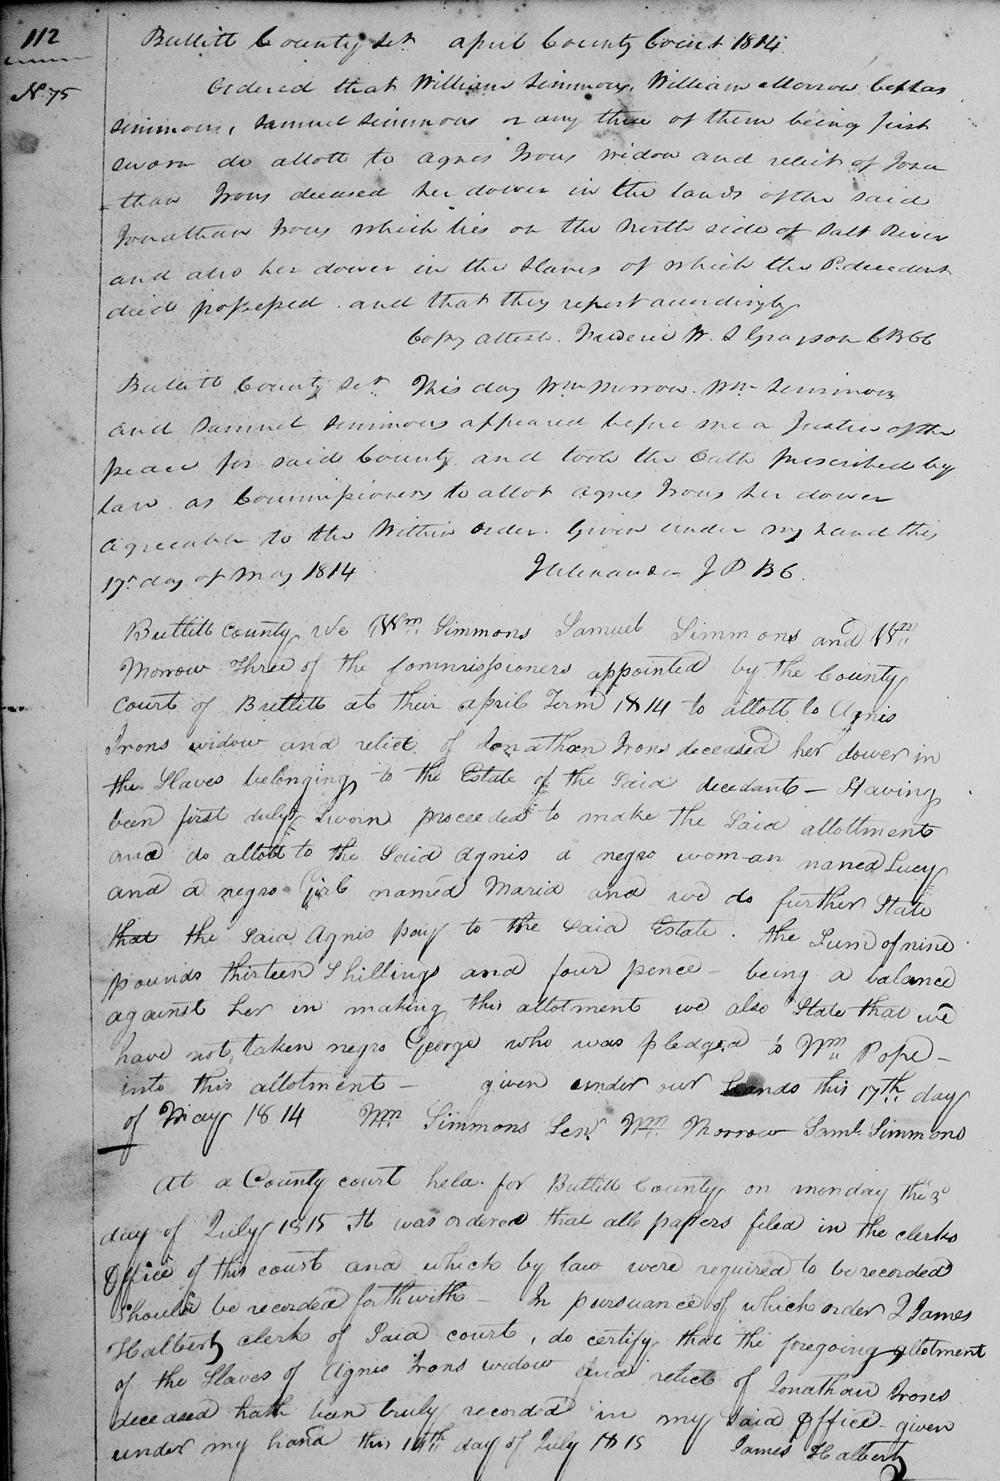 112
No. 75
Bullitt County Sct. april County Court 1814
Ordered that William Simmons, William Morrow
Simmons, Samuel Simmons or any three of them being first
sworn do allott to Agnes Irons widow and relict of Jona
than Irons deceased her dower in the lands of the said
Jonathan Irons which lies on the North side of Salt River
and also her dower in the slaves of which the decedent
died possessed and that they report accordingly
Copy attest. Frederic W. S Grayson CBCC
Bullitt County Sct. This day Wm Morrow. Wm Simmons
and Samuel Simmons appeared before me a Justice of the
peace for said County and took the Oath prescribed by
law as Commissioners to allot Agnes Irons her dower
agreeable to the Within order. Given under my hand this
17th day of May 1814 J Alexander J P B C.
Bullitt County We Wm Simmons Samuel Simmons and Wm
Morrow Three of the Commissioners appointed by the County
Court of Bullitt at their april Term 1814 to allott to Agnis
Irons widow and relict of Jonathan Irons deceased her dower in
the Slaves belonging to the Estate of the Said decedants - Having
been first duly Sworn proceeded to make the Said allottments
and do allott to the Said Agnis a negro woman named Lucy
and a negro Girl named Maria and we do further State
that the Said Agnis pay to the Said Estate. the Sum of nine
pounds thirteen Shillings and four pence - being a balance
against her in making this allotment we also State that we
have not taken negro George who was pledged to Wm Pope -
into this allotment - given under our hands this 17th day
of May 1814 Wm Simmons Senr Wm Morrow Saml Simmons
At a County court held for Bullitt County on monday the 3d
day of July 1815 It was ordered that all papers filed in the clerks
Office of this court and which by law were required to be recorded
Should be recorded forthwith - In pursuance of which order I James
Halbert clerk of Said court, do certify that the foregoing allotment
of the Slaves of Agnes Irons widow and relict of Jonathan Irons
deceased hath been truly recorded in my Said Office given
under my hand this 14th day of July 1815 James Halbert